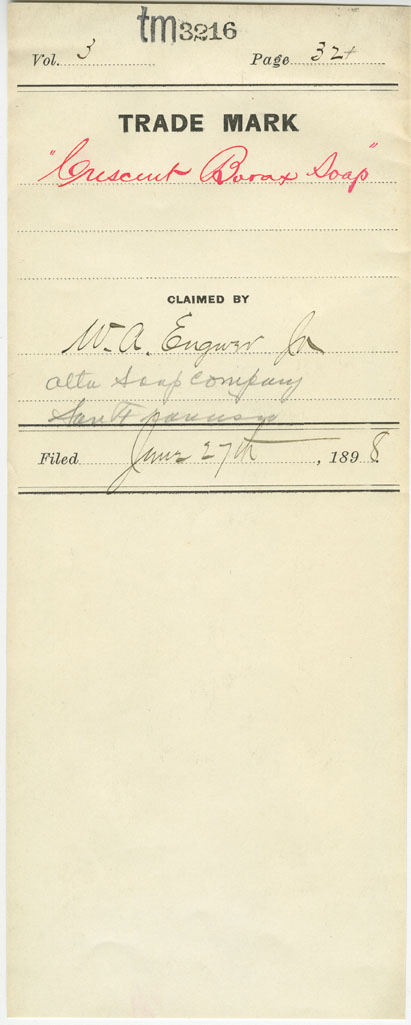 tm3216
Vol. 3 Page 32+
TRADE MARK
"Crescent Borax Soap"
CLAIMED BY
W. A. Engwer Jr
Alta Soap Company
San Francisco
Filed June 27th, 1898.